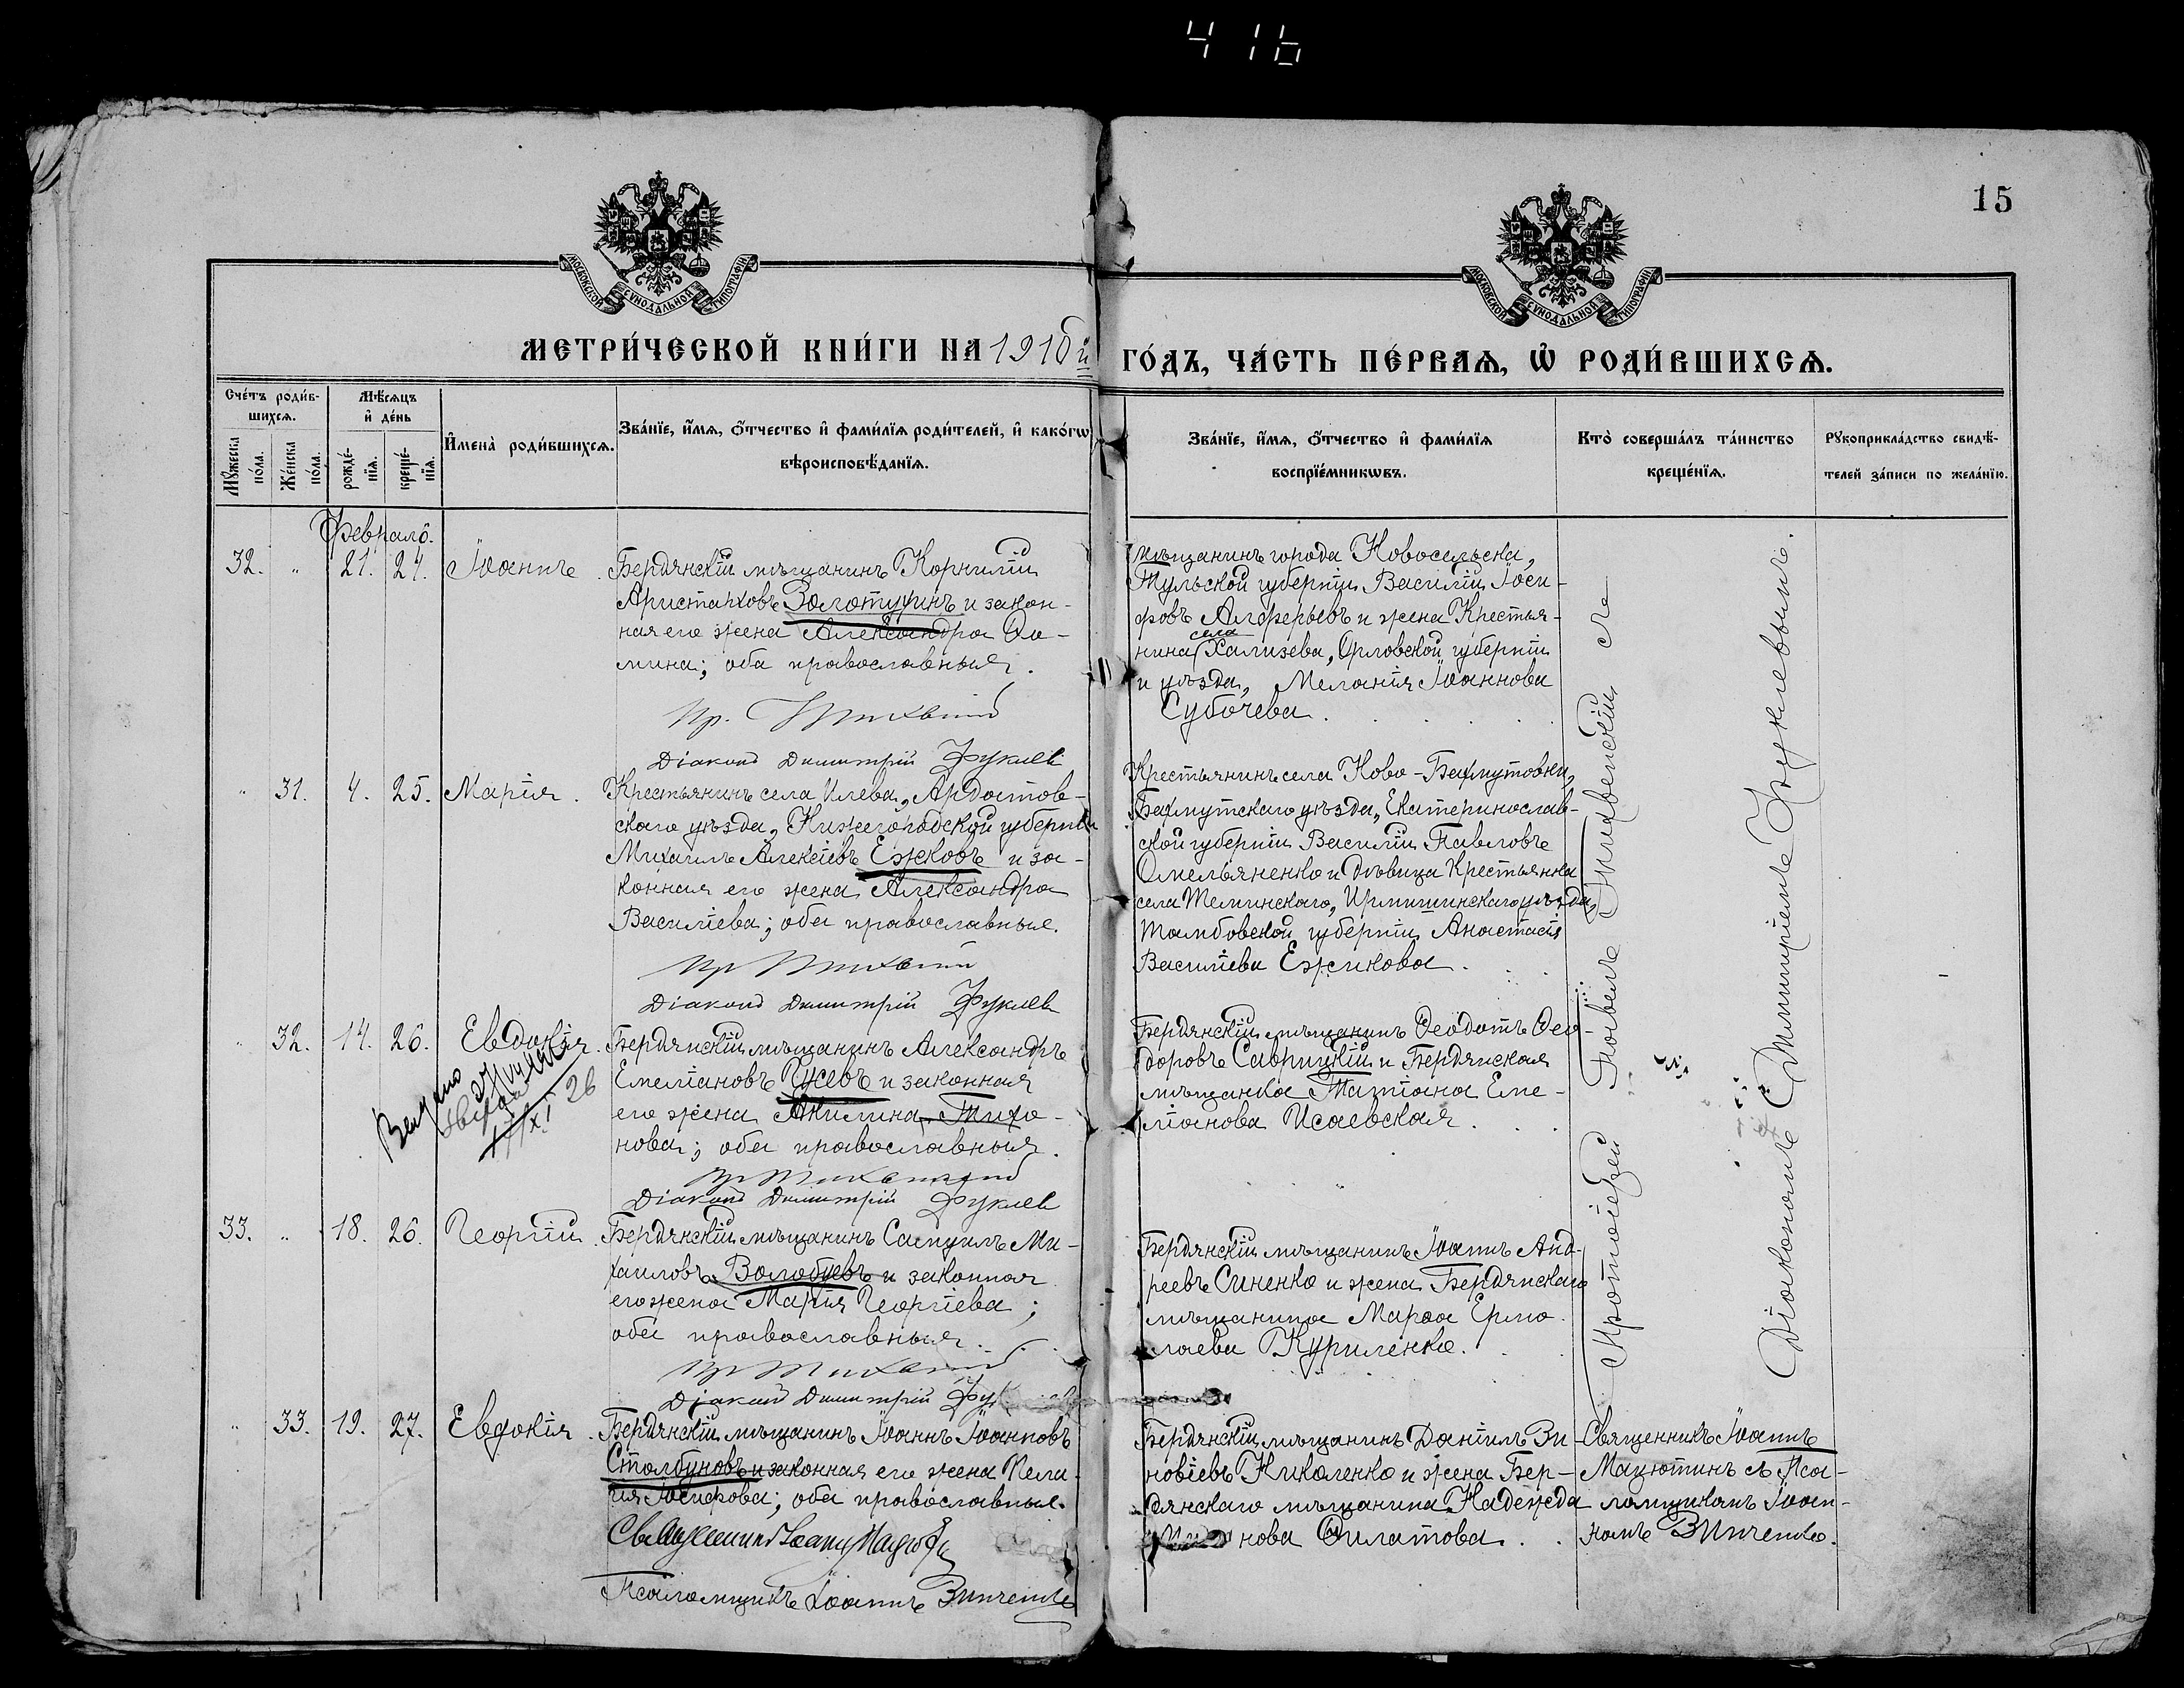 416
15
МОСКОВСКОЙ СѴНОДАЛЬНОЙ ТИПОГРАФІИ
МОСКОВСКОЙ СѴНОДАЛЬНОЙ ТИПОГРАФІИ
МЕТРИ́ЧЕСКОЙ КНИ́ГИ НА 1916й
ГО́ДЪ, ЧА́СТЬ ПЕ́РВАѦ, Ѡ҆ РОДИ́ВШИХСѦ.
Сче́тъ роди́в-
шихсѧ.
Мꙋ́жеска
по́ла.
Же́нска
по́ла.
Мѣ́сѧцъ
и҆ де́нь
рожде́-
нїѧ.
креще́-
нїѧ.
И҆мена̀ роди́вшихсѧ.
Зва́нїе, и҆́мѧ, ѻ҆́тчество и҆ фами́лїѧ роди́телей, и҆ како́гѡ
вѣроисповѣ́данїѧ.
Зва́нїе, и҆́мѧ, ѻ҆́тчество и҆ фами́лїѧ
воспрїе́мникѡвъ.
Кто̀ соверша́лъ та́инство
креще́нїѧ.
Рꙋкоприкла́дство свидѣ́-
телей за́писи по жела́нїю.
Февраль.
32. " 21. 24. Іоаннъ.
Бердянскій мѣщанинъ Корнилій
Аристарховъ Золотухинъ и закон-
ная его жена Александра Ѳо-
мина; оба православныя.
Пр. Тихвинскій
Діаконъ Димитрій Фуклевъ
мѣщанинъ города Новосельска,
Тульской губерніи Василій Іоси-
фовъ Алферьевъ и жена Крестья-
нина села Хализева, Орловской губерніи
и уѣзда, Меланія Іоаннова
Субочева.
" 31. 4. 25. Марія.
Крестьянинъ села Илева, Ардатов-
скаго уѣзда, Нижегородской губерніи
Михаилъ Алексіевъ Ежковъ и за-
конная его жена Александра
Василіева; оба православные.
Пр Тихвинскій
Діаконъ Димитрій Фуклевъ
Крестьянинъ села Ново-Бахмутовки,
Бахмутскаго уѣзда, Екатеринослав-
ской губерніи Василій Павловъ
Омельяненко и дѣвица Крестьянка
села Теминскаго, уѣзда,
Тамбовской губерніи Анастасія
Василіева Ежикова.
" 32. 14. 26. Евдокія.
26
Бердянскій мѣщанинъ Александръ
Емеліановъ Гусевъ и законная
его жена Акилина Тихо-
нова; оба православныя.
Пр Тихвинскій
Діаконъ Димитрій Фуклевъ
Бердянскій мѣщанинъ Ѳеодотъ Ѳео-
доровъ Саврицкій и Бердянская
мѣщанка Татіана Еме-
ліанова Исаевская.
33. " 18. 26. Георгій.
Бердянскій мѣщанинъ Самуилъ Ми-
хаиловъ Волобуевъ и законная
его жена Марія Георгіева;
оба православныя.
Пр Тихвинскій
Діаконъ Димитрій
Бердянскій мѣщанинъ Іоаннъ Анд-
реевъ Синенко и жена Бердянскаго
мѣщанина Марѳа Ермо-
лаева Куриленко.
Протоіерей Павелъ Тихвинскій съ
Діакономъ Димитріемъ Фуклевымъ.
" 33. 19. 27. Евдокія.
Бердянскій мѣщанинъ Іоаннъ Іоанновъ
Столбуновъ и законная его жена Пела-
гія Іосифова; оба православные.
Священникъ Іоаннъ Мацютинъ
Псаломщикъ Іоаннъ Зинченко
Бердянскій мѣщанинъ Даніилъ Зи-
новіевъ Николенко и жена Бер-
дянскаго мѣщанина Надежда
нова Филатова.
Священникъ Іоаннъ
Мацютинъ съ Пса-
ломщикомъ Іоан-
номъ Зинченко.